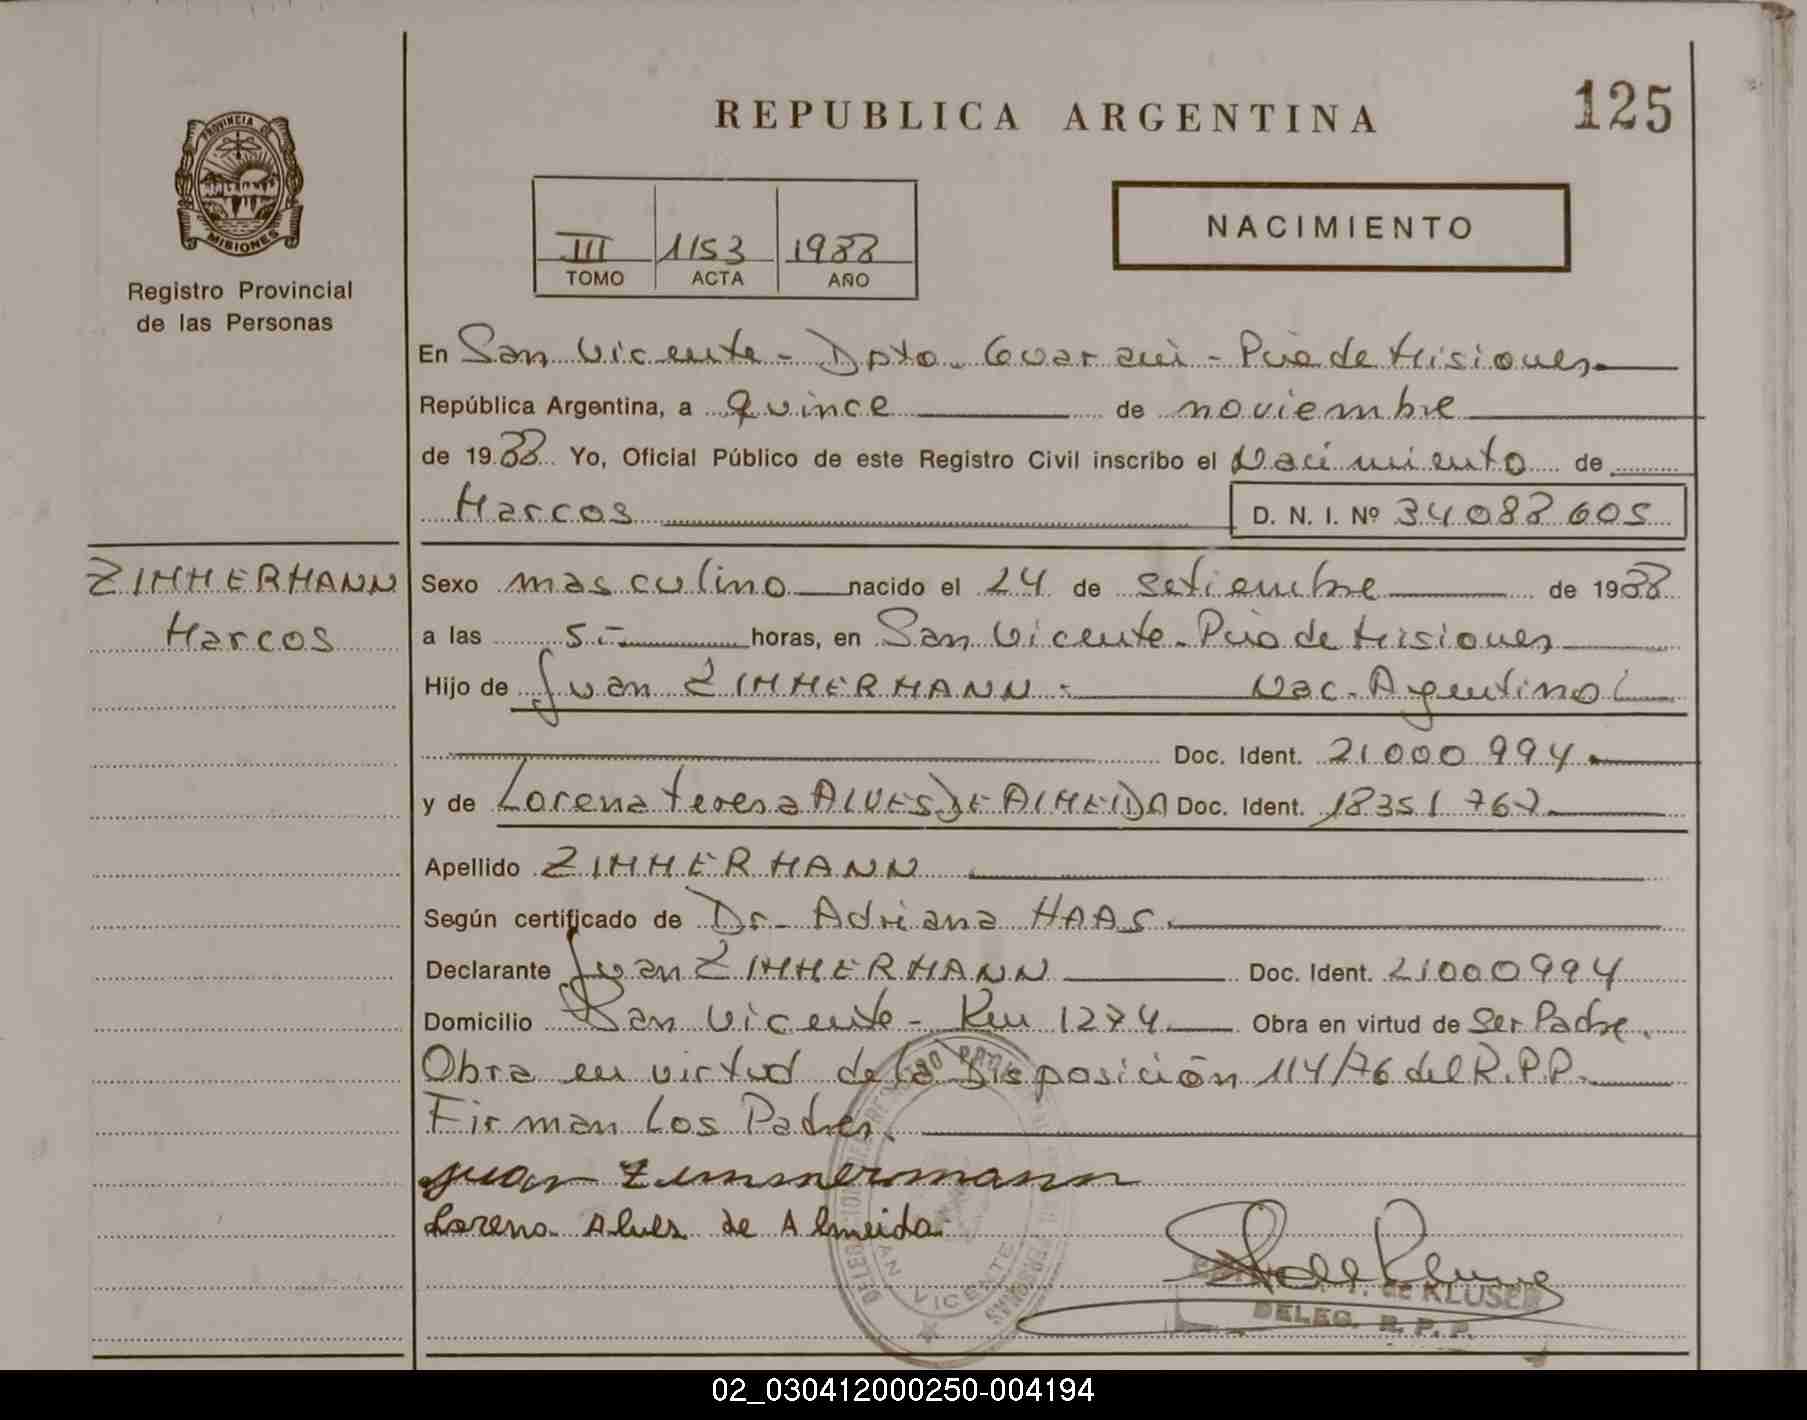 REPUBLICA ARGENTINA
125
PROVINCIA DE
MISIONES
Registro Provincial
de las Personas
III 1153 1988
TOMO ACTA AÑO
NACIMIENTO
En San Vicente - Dpto. Guaraní - Pcia de Misiones
República Argentina, a quince de noviembre
de 1988 Yo, Oficial Público de este Registro Civil inscribo el Nacimiento de
Marcos D. N. I. Nº 34088605
ZIMMERMANN
Marcos
Sexo masculino nacido el 24 de setiembre de 1988
a las 5.- horas, en San Vicente - Pcia de Misiones
Hijo de Juan ZIMMERMANN - Nac. Argentino
Doc. Ident. 21000994
y de Lorena Teresa ALVES DE ALMEIDA Doc. Ident. 18351767
Apellido ZIMMERMANN
Según certificado de Dr. Adriana HAAS
Declarante Juan ZIMMERMANN Doc. Ident. 21000994
Domicilio San Vicente - Km 1274 Obra en virtud de Ser Padre.
Obra en virtud de la Disposición 114/76 del R.P.P.
Firman los Padres.
Juan Zimmermann
Lorena Alves de Almeida
VICENTE
de KLUSER
DELEG. R. P. P.
02_030412000250-004194